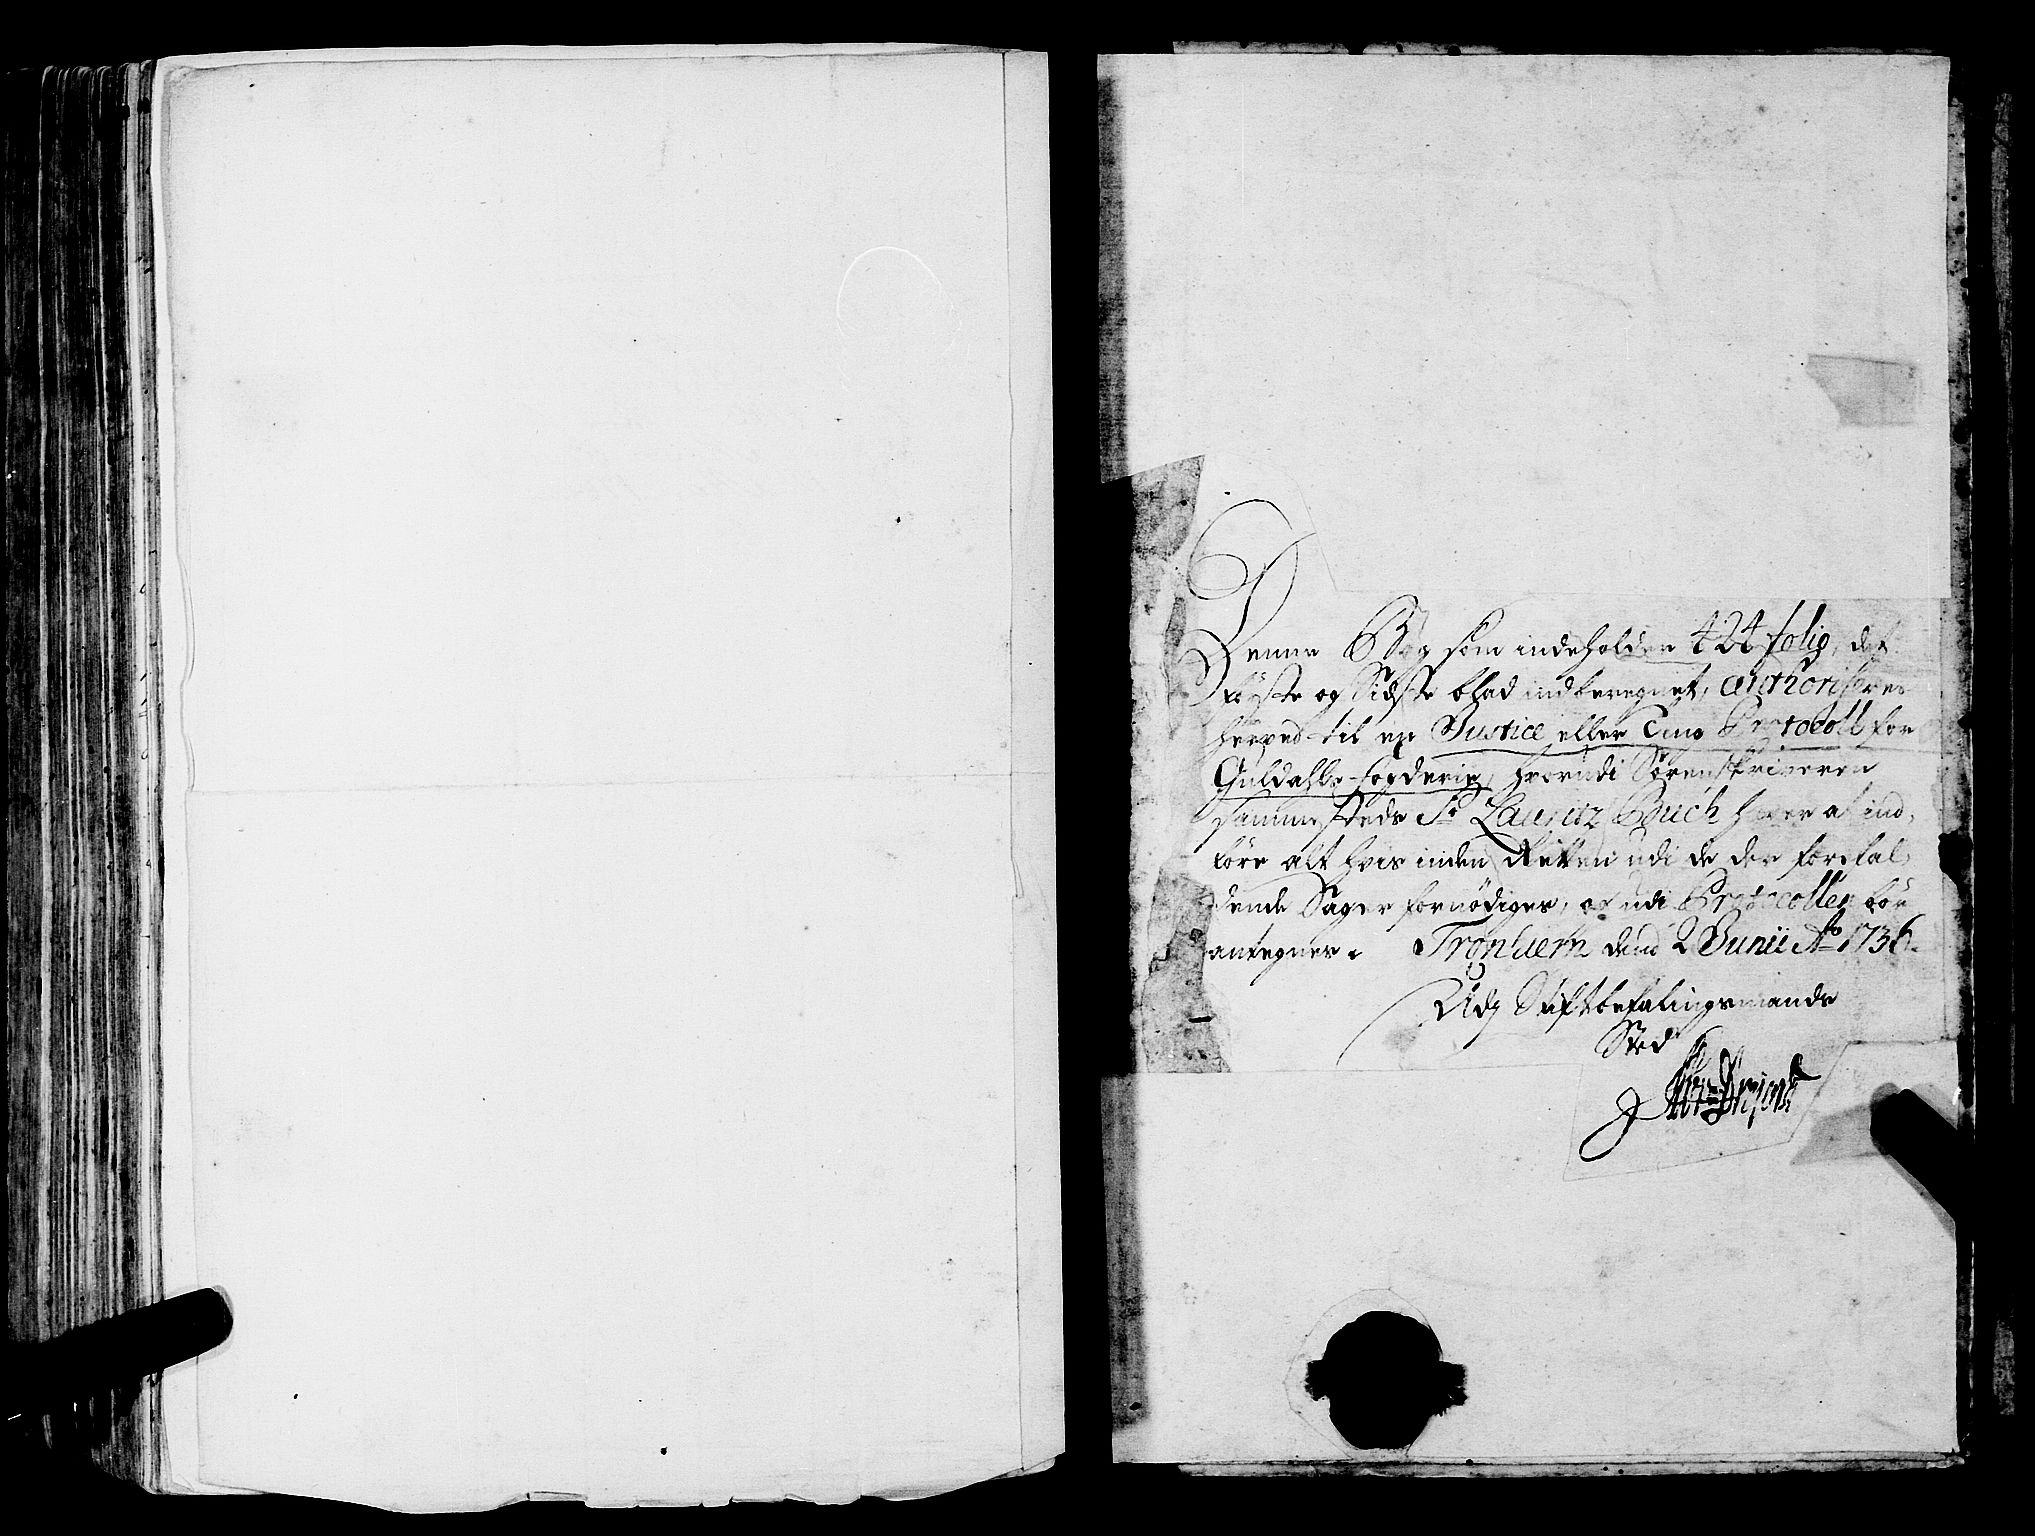 Denne Bog som indeholder 424 folio, det
første og Sidste blad indberegnet, authoriseres
herved til en Justice eller Ting Protocoll for
Guldahls fogderie, hvorudi Sørenskriveren
sammesteds Sr Lauritz Buch haver at ind,
føre alt hvis inden Retten udi de der forefal,
dende Sager fornødiges, og udi Protocollen bør
antegnes. Tronhiem dend 2 Junii Ao 1736.
Udj Stiftbefalingsmands
Sted